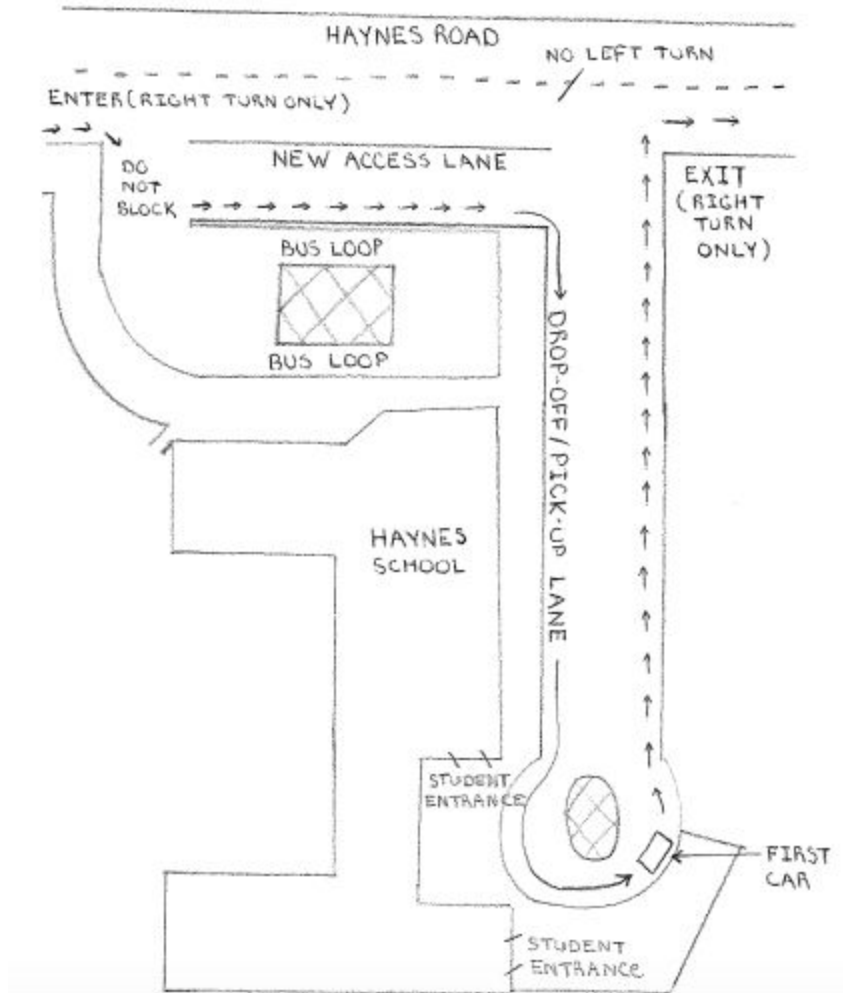 HAYNES ROAD
NO LEFT TURN
ENTER (RIGHT TURN ONLY)
NEW ACCESS LANE
DO
NOT
BLOCK
EXIT
(RIGHT
TURN
ONLY)
BUS LOOP
BUS LOOP
DROP-OFF/PICK-UP LANE
HAYNES
SCHOOL
STUDENT
ENTRANCE
FIRST
CAR
STUDENT
ENTRANCE